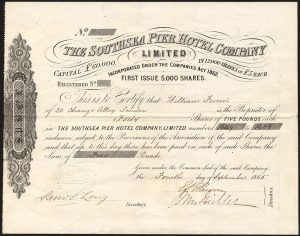 No.
THE SOUTHSEA PIER HOTEL COMPANY
LIMITED
CAPITAL £60,000, IN 12,000 SHARES OF £5 EACH
INCORPORATED UNDER THE COMPANIES ACT 1862
FIRST ISSUE 5,000 SHARES.
REGISTERED No.
This is to Certify that William
of 20 Change Alley London is the Proprietor of
Forty Shares of FIVE POUNDS each
in THE SOUTHSEA PIER HOTEL COMPANY, LIMITED numbered to
inclusive, subject to the Provisions of the Association of the said Company
and that up to this day there has been paid on each of such Shares
the Sum of Five Pounds.
Given under the Common Seal of the said Company
the Fourth day of September 1865
Secretary
Directors